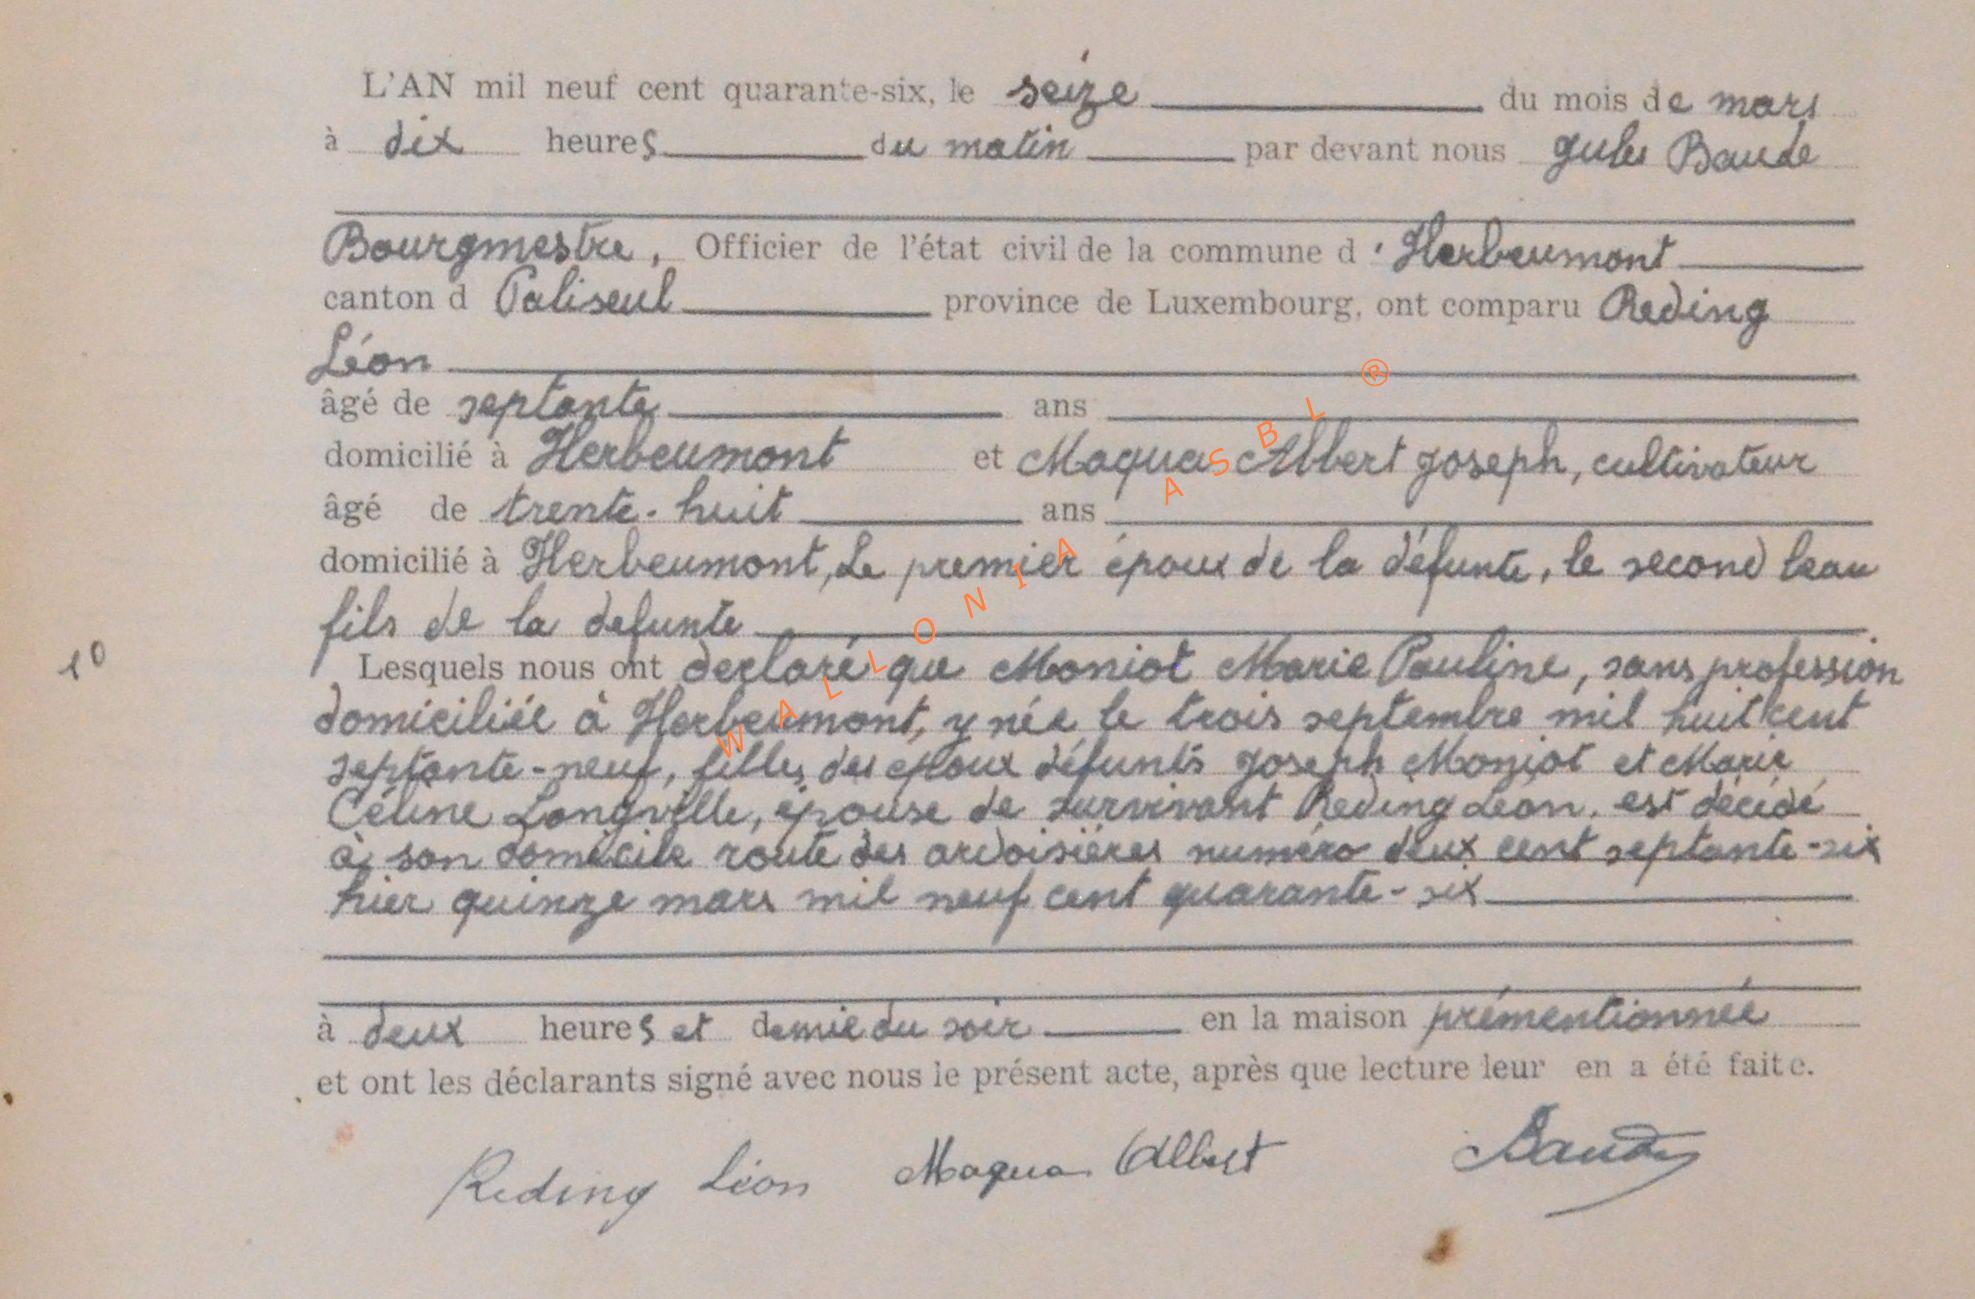 L'AN mil neuf cent quarante-six, le seize du mois de mars
à dix heures du matin par devant nous Jules Baude
Bourgmestre, Officier de l'état civil de la commune d'Herbeumont
canton d Paliseul province de Luxembourg, ont comparu Reding
Léon
âgé de septante ans
domicilié à Herbeumont et Maqua Albert Joseph, cultivateur
âgé de trente-huit ans
domicilié à Herbeumont, Le premier époux de la défunte, le second beau
fils de la defunte
10
Lesquels nous ont declaré que Moniot Marie Pauline, sans profession
domiciliée à Herbeumont, y née le trois septembre mil huit cent
septante-neuf, fille des époux défunts Joseph Moniot et Marie
Céline Longville, épouse de survivant Reding Léon, est décédé
à son domicile route des ardoisières numéro deux cent septante-six
hier quinze mars mil neuf cent quarante-six
à deux heures et demie du soir en la maison prémentionnée
et ont les déclarants signé avec nous le présent acte, après que lecture leur en a été faite.
Reding Léon Maqua Albert Baude
WALLONIA ASBL ®